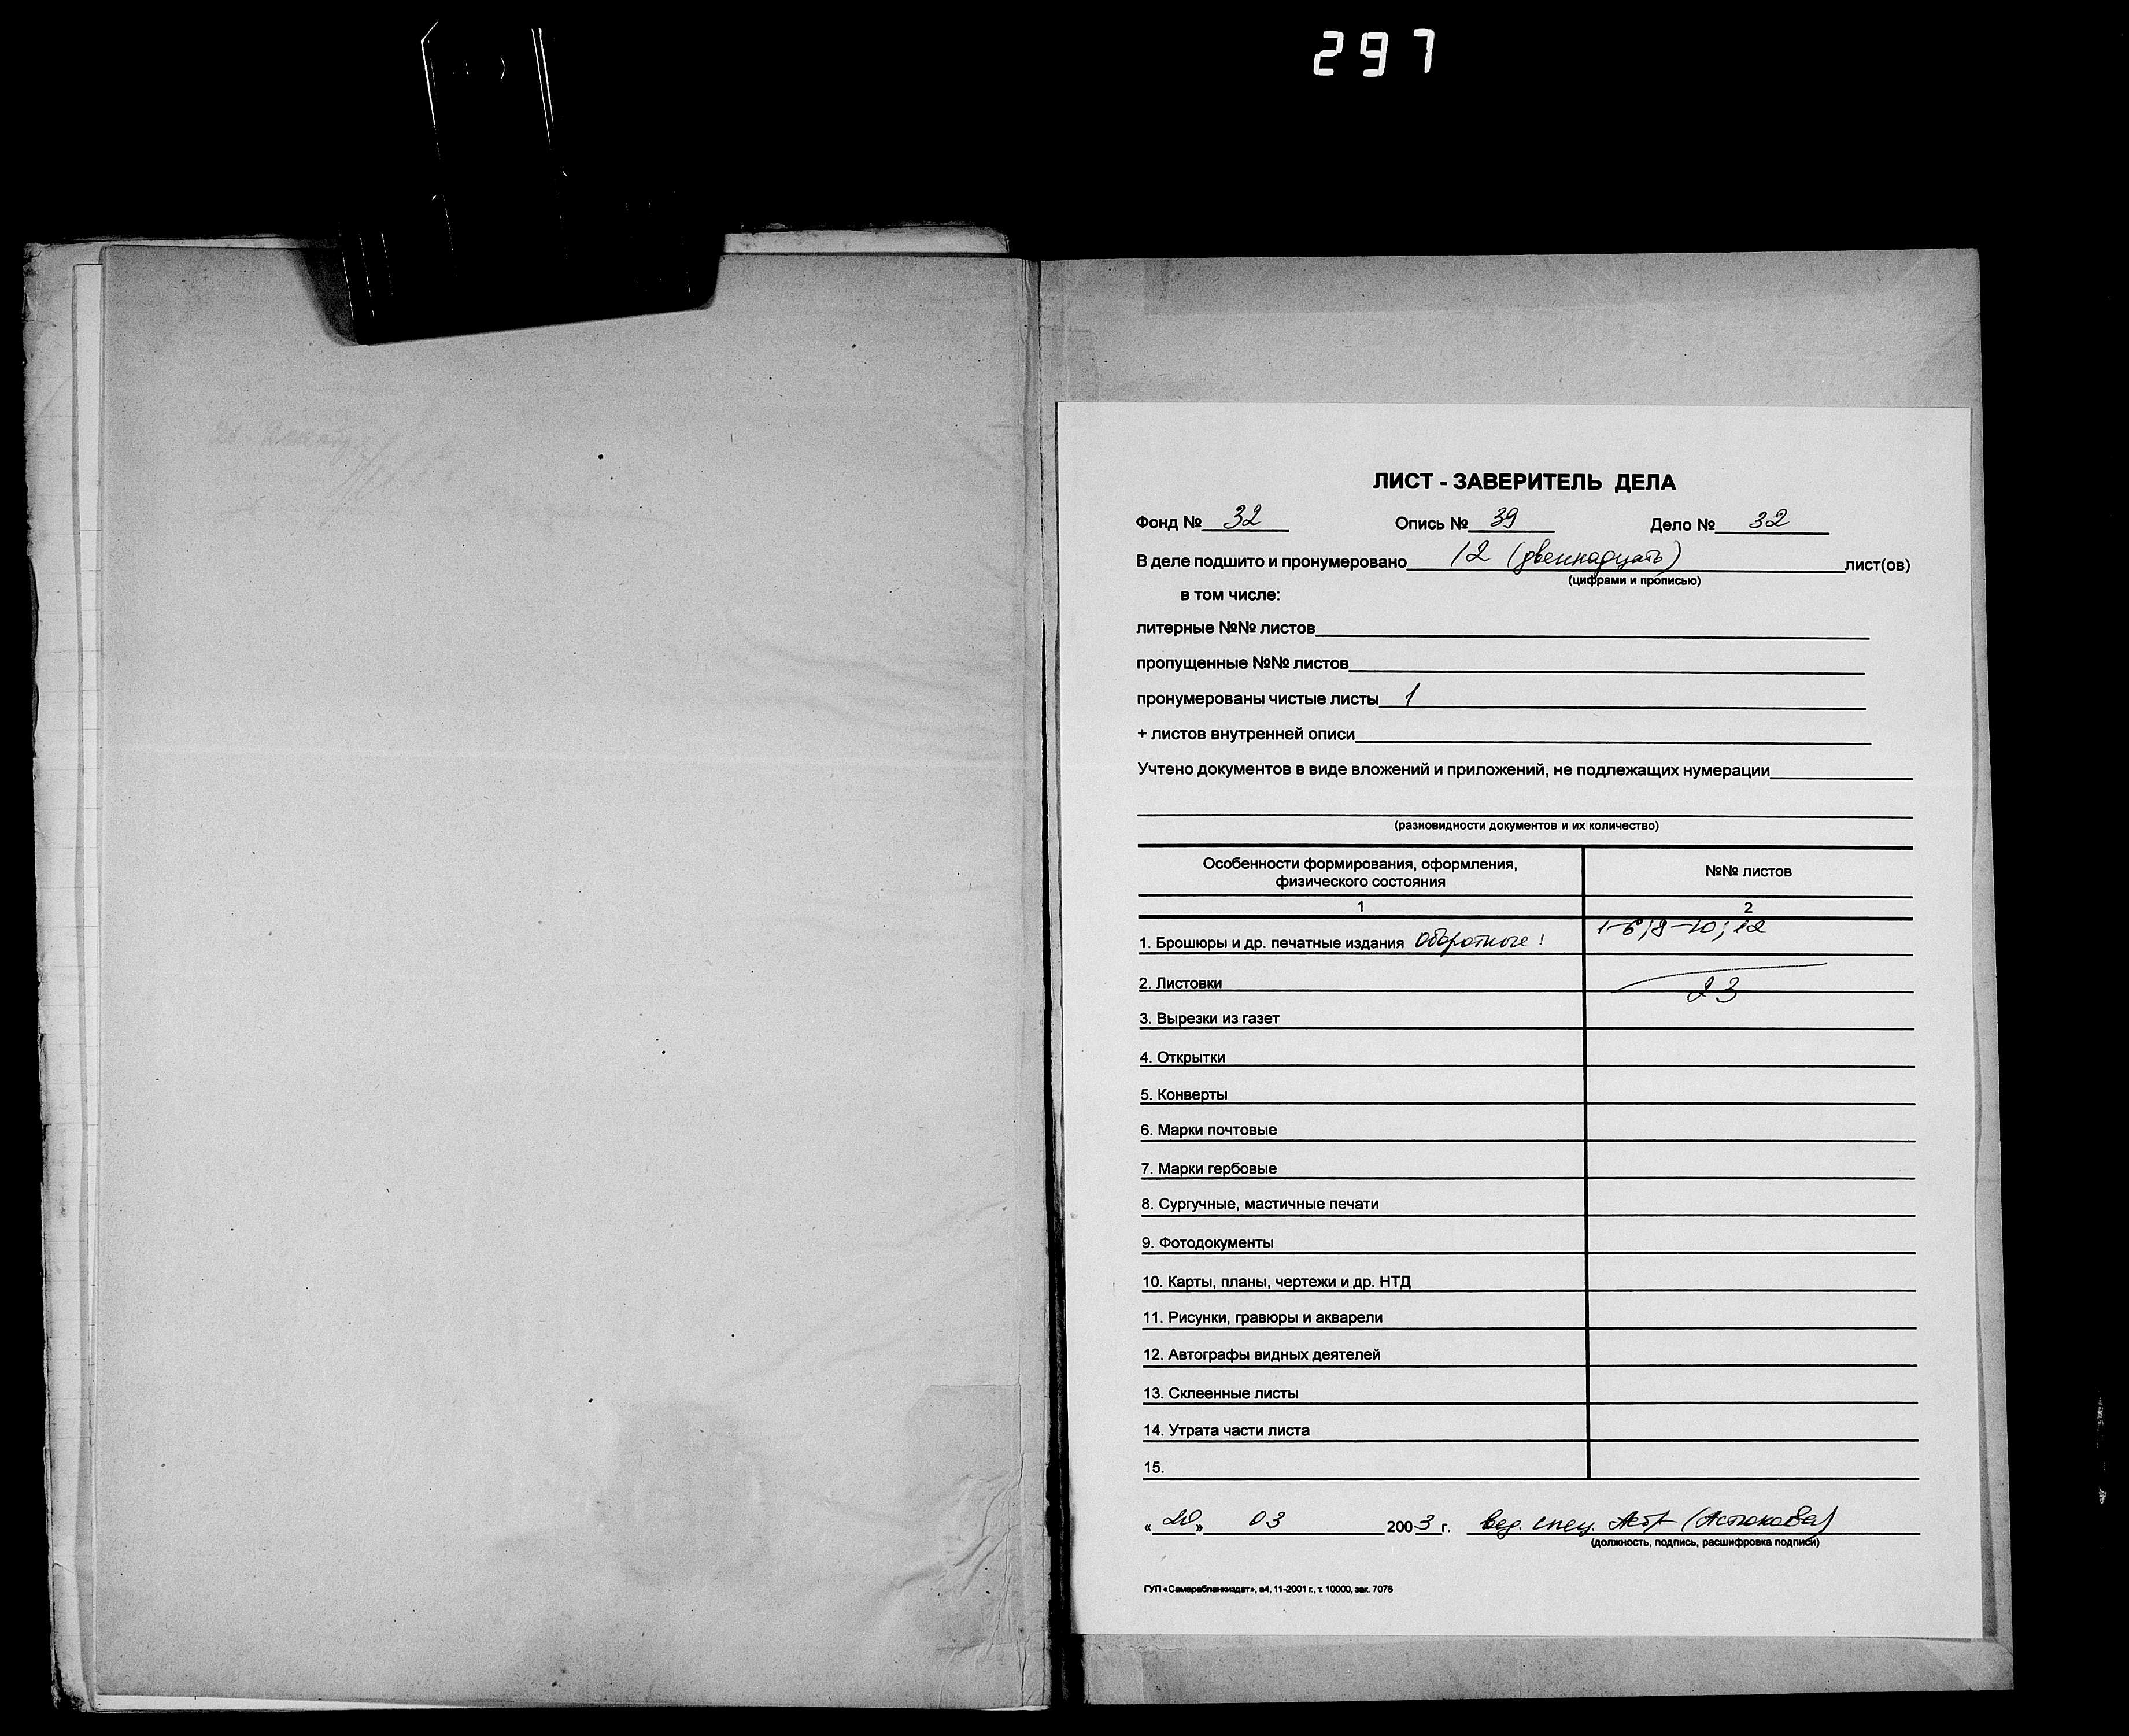 297
ЛИСТ - ЗАВЕРИТЕЛЬ ДЕЛА
Фонд № 32 Опись № 39 Дело № 32
В деле подшито и пронумеровано 12 (двенадцать) лист(ов)
(цифрами и прописью)
в том числе:
литерные №№ листов
пропущенные №№ листов
пронумерованы чистые листы 1
+ листов внутренней описи
Учтено документов в виде вложений и приложений, не подлежащих нумерации
(разновидности документов и их количество)
Особенности формирования, оформления, физического состояния №№ листов
1 2
1. Брошюры и др. печатные издания Оборотные! 1-6; 8-10; 12
2. Листовки 23
3. Вырезки из газет
4. Открытки
5. Конверты
6. Марки почтовые
7. Марки гербовые
8. Сургучные, мастичные печати
9. Фотодокументы
10. Карты, планы, чертежи и др. НТД
11. Рисунки, гравюры и акварели
12. Автографы видных деятелей
13. Склеенные листы
14. Утрата части листа
15.
«20» 03 2003 г. вед. спец.
(должность, подпись, расшифровка подписи)
ГУП «Самарабланкиздат», а4, 11-2001 г., т. 10000, зак. 7076